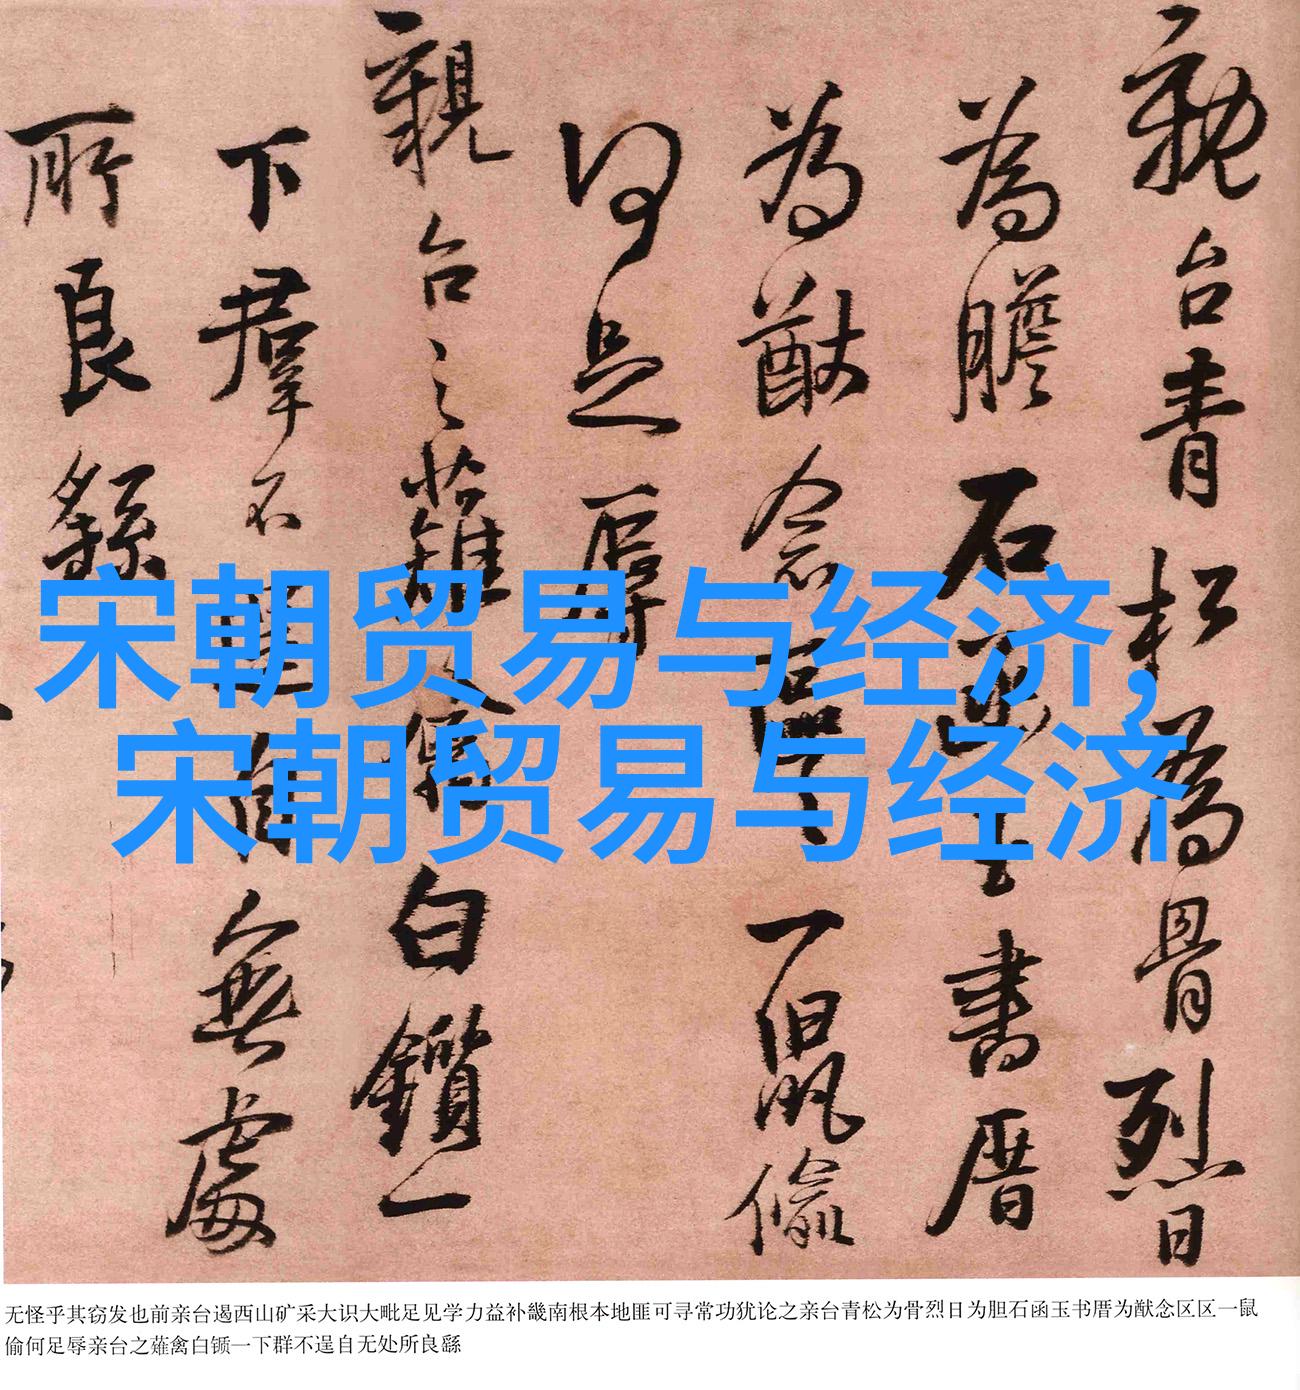 親台青松為骨烈日
為膽石函玉書厝
為猷念區區一鼠偷
何足辱
親台之薙禽白鑕一
下群不逞自無處
所良繇
宋朝贸易与经济,
宋朝贸易与经济
无怪乎其窃发也前亲台遏西山矿采大识大毗足见学力益补畿南根本地匪可寻常功犹论之亲台青松为骨烈日为胆石函玉书厝为猷念区区一鼠
偷何足辱亲台之薙禽白锧一下群不逞自无处所良繇